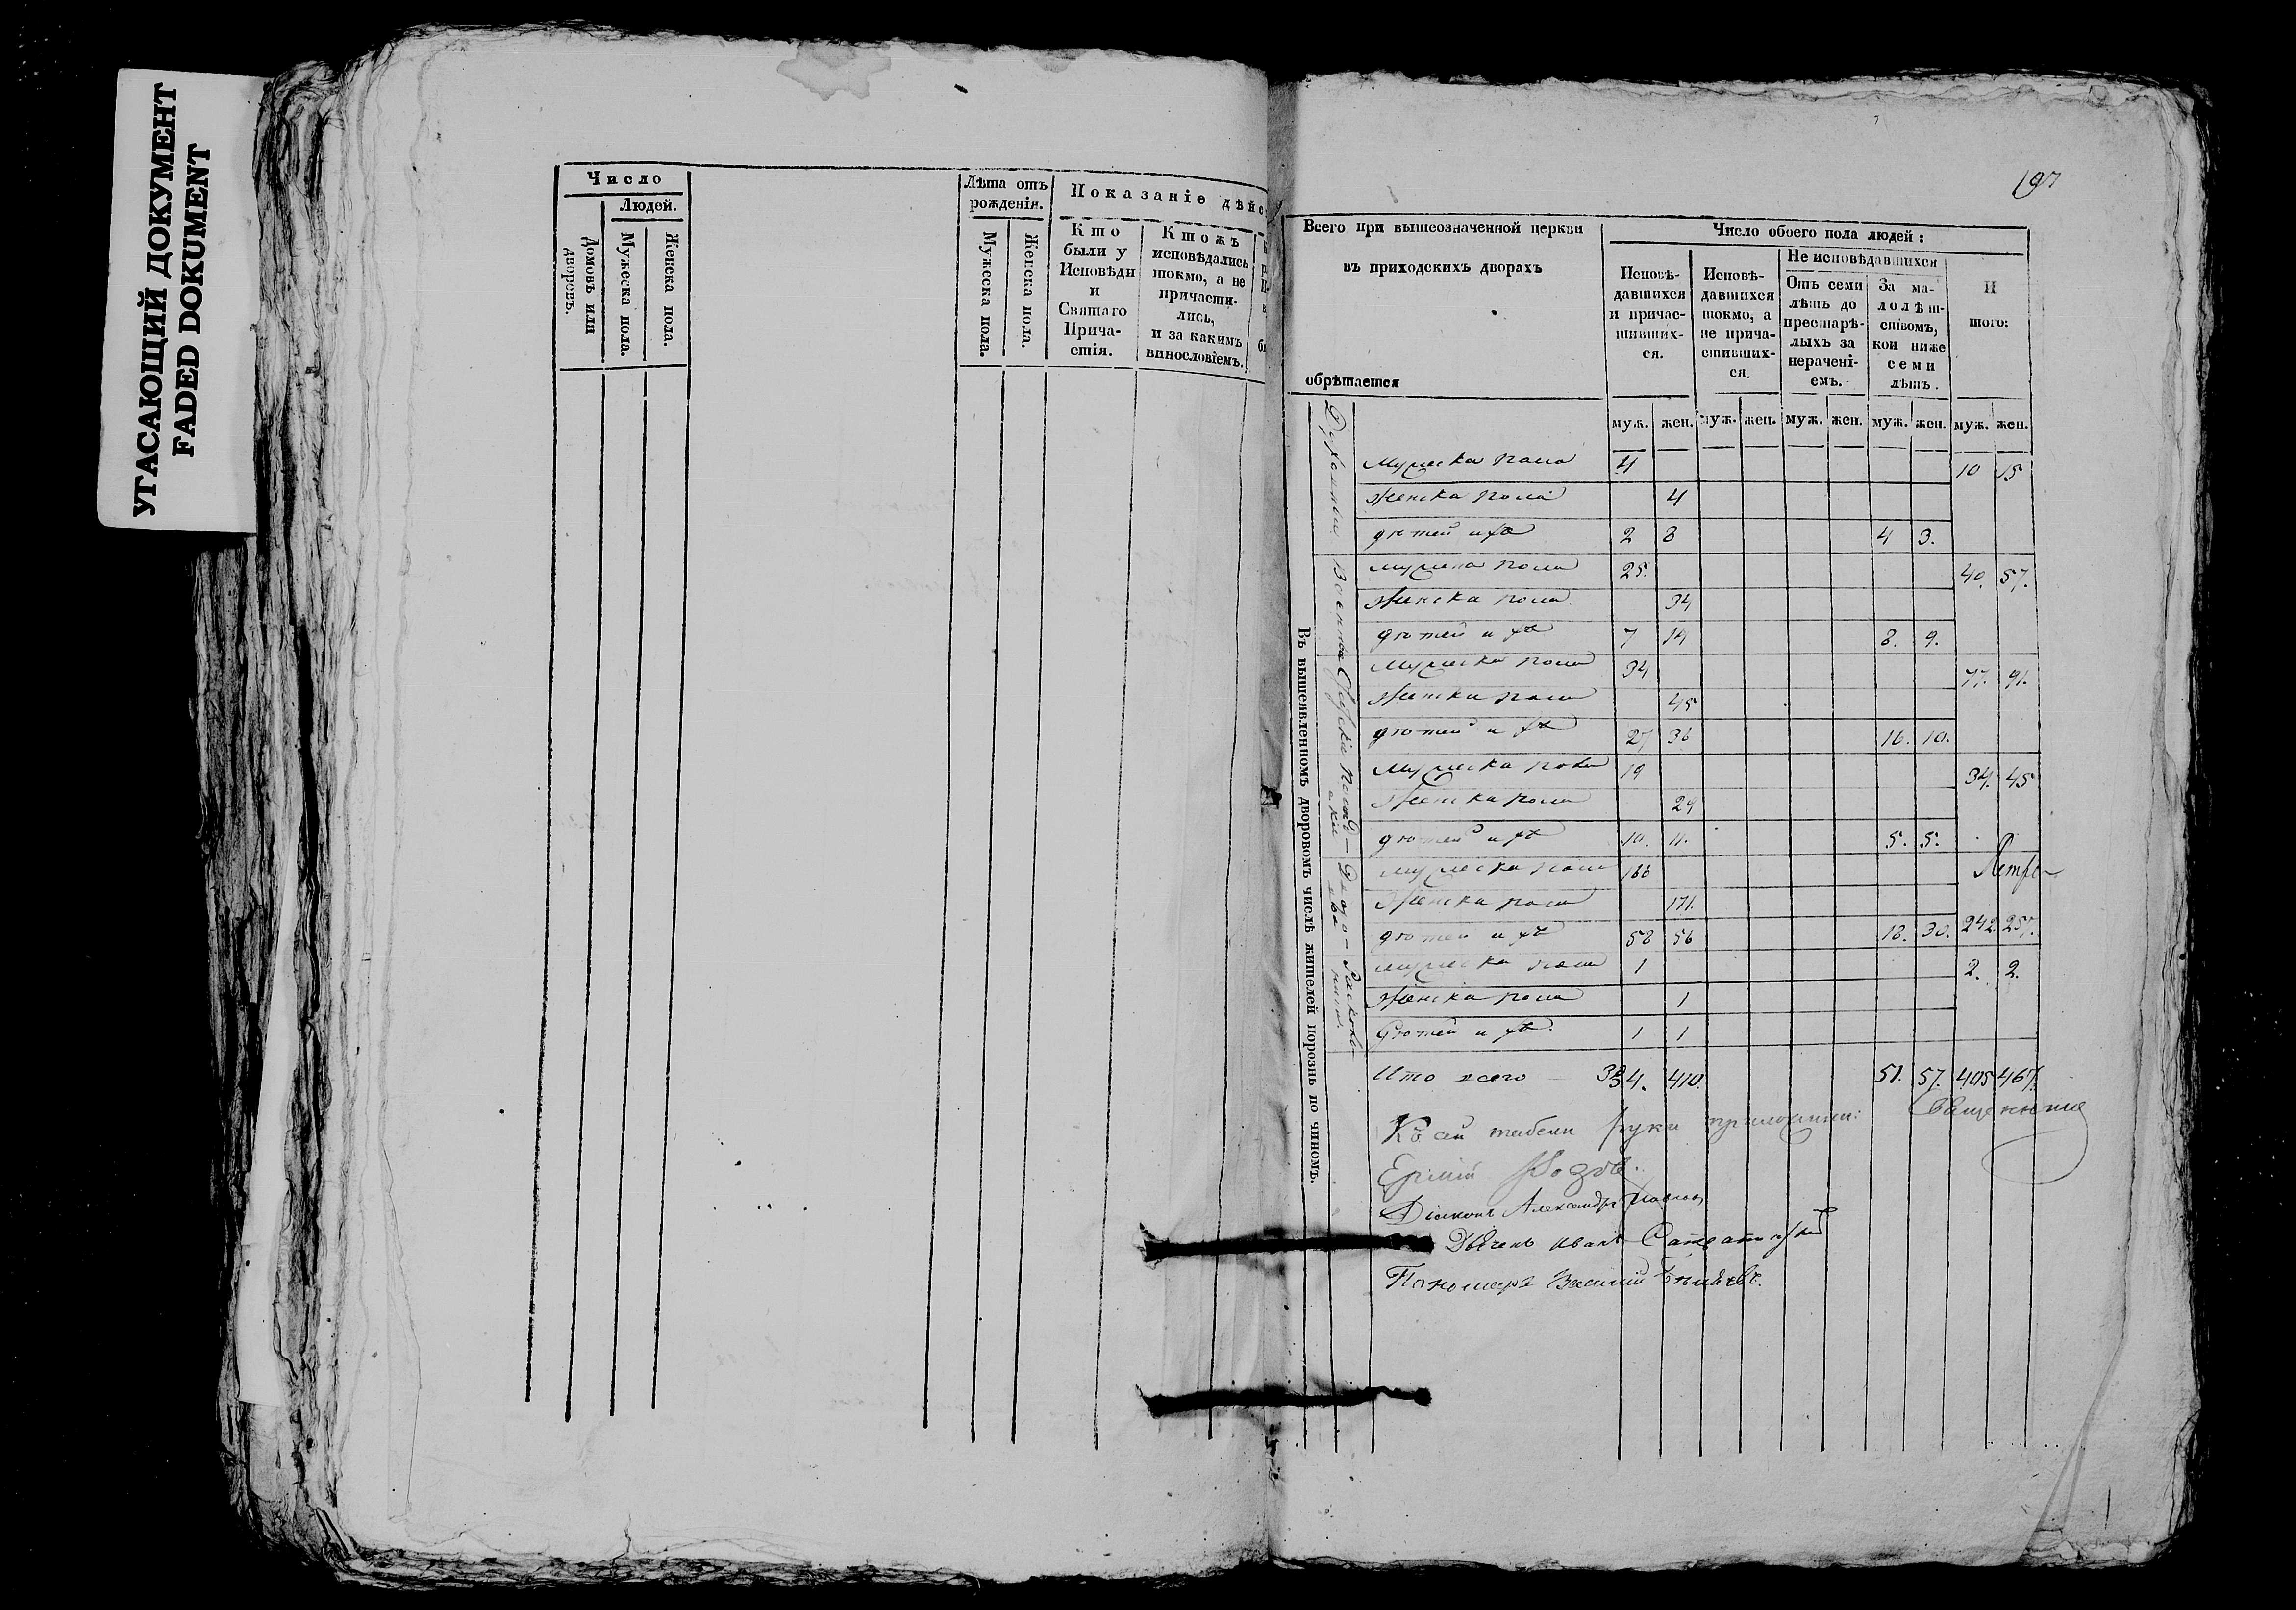 УГАСАЮЩИЙ ДОКУМЕНТ
FADED DOKUMENT
Число
Людей.
Домовъ или дворовъ.
Мужеска пола.
Женска пола.
Лѣта отъ рожденія.
Мужеска пола.
Женска пола.
Показаніе дѣйс
Кто
были у
Исповѣди
и
Святаго
Прича-
стія.
Ктожъ
исповѣдались
токмо, а не
причасти-
лись,
и за какимъ
винословіемъ.
197
Всего при вышеозначенной церкви
въ приходскихъ дворахъ
обрѣтается
Число обоего пола людей:
Исповѣ-
давшихся
и причас-
тивших-
ся.
Исповѣ-
давшихся
токмо, а
не прича-
стивших-
ся.
Не исповѣдавшихся
Отъ семи
лѣтъ до
престарѣ-
лыхъ за
нерачені-
емъ.
За ма-
лолѣт-
ствомъ,
кои ниже
семи
лѣтъ.
И
того:
муж. жен. муж. жен. муж. жен. муж. жен. муж. жен.
Въ вышеявленномъ дворовомъ числѣ жителей порознь по чиномъ.
Духовныхъ
Мужеска пола 4 10 15
Женска пола 4
дѣтей ихъ 2 8 4 3.
Мужеска пола 25. 40. 57.
Женска пола 34
дѣтей ихъ 7 14 8. 9.
Мужеска пола 34 77. 91.
Женска пола 45
дѣтей ихъ 27 36 16. 10.
Мужеска пола 19 34. 45
Женска пола 29
дѣтей ихъ 10. 11. 5. 5.
Мужеска пола 166
Женска пола 171.
дѣтей ихъ 58 56 18. 30. 242. 257.
Мужеска пола 1 2. 2.
Женска пола 1
дѣтей ихъ 1 1
Итого всего 354. 410. 51. 57. 405 467.
Къ сей табели руки приложили: Священникъ
Діаконъ Александръ
Дьячекъ Иванъ
Пономарь Василий